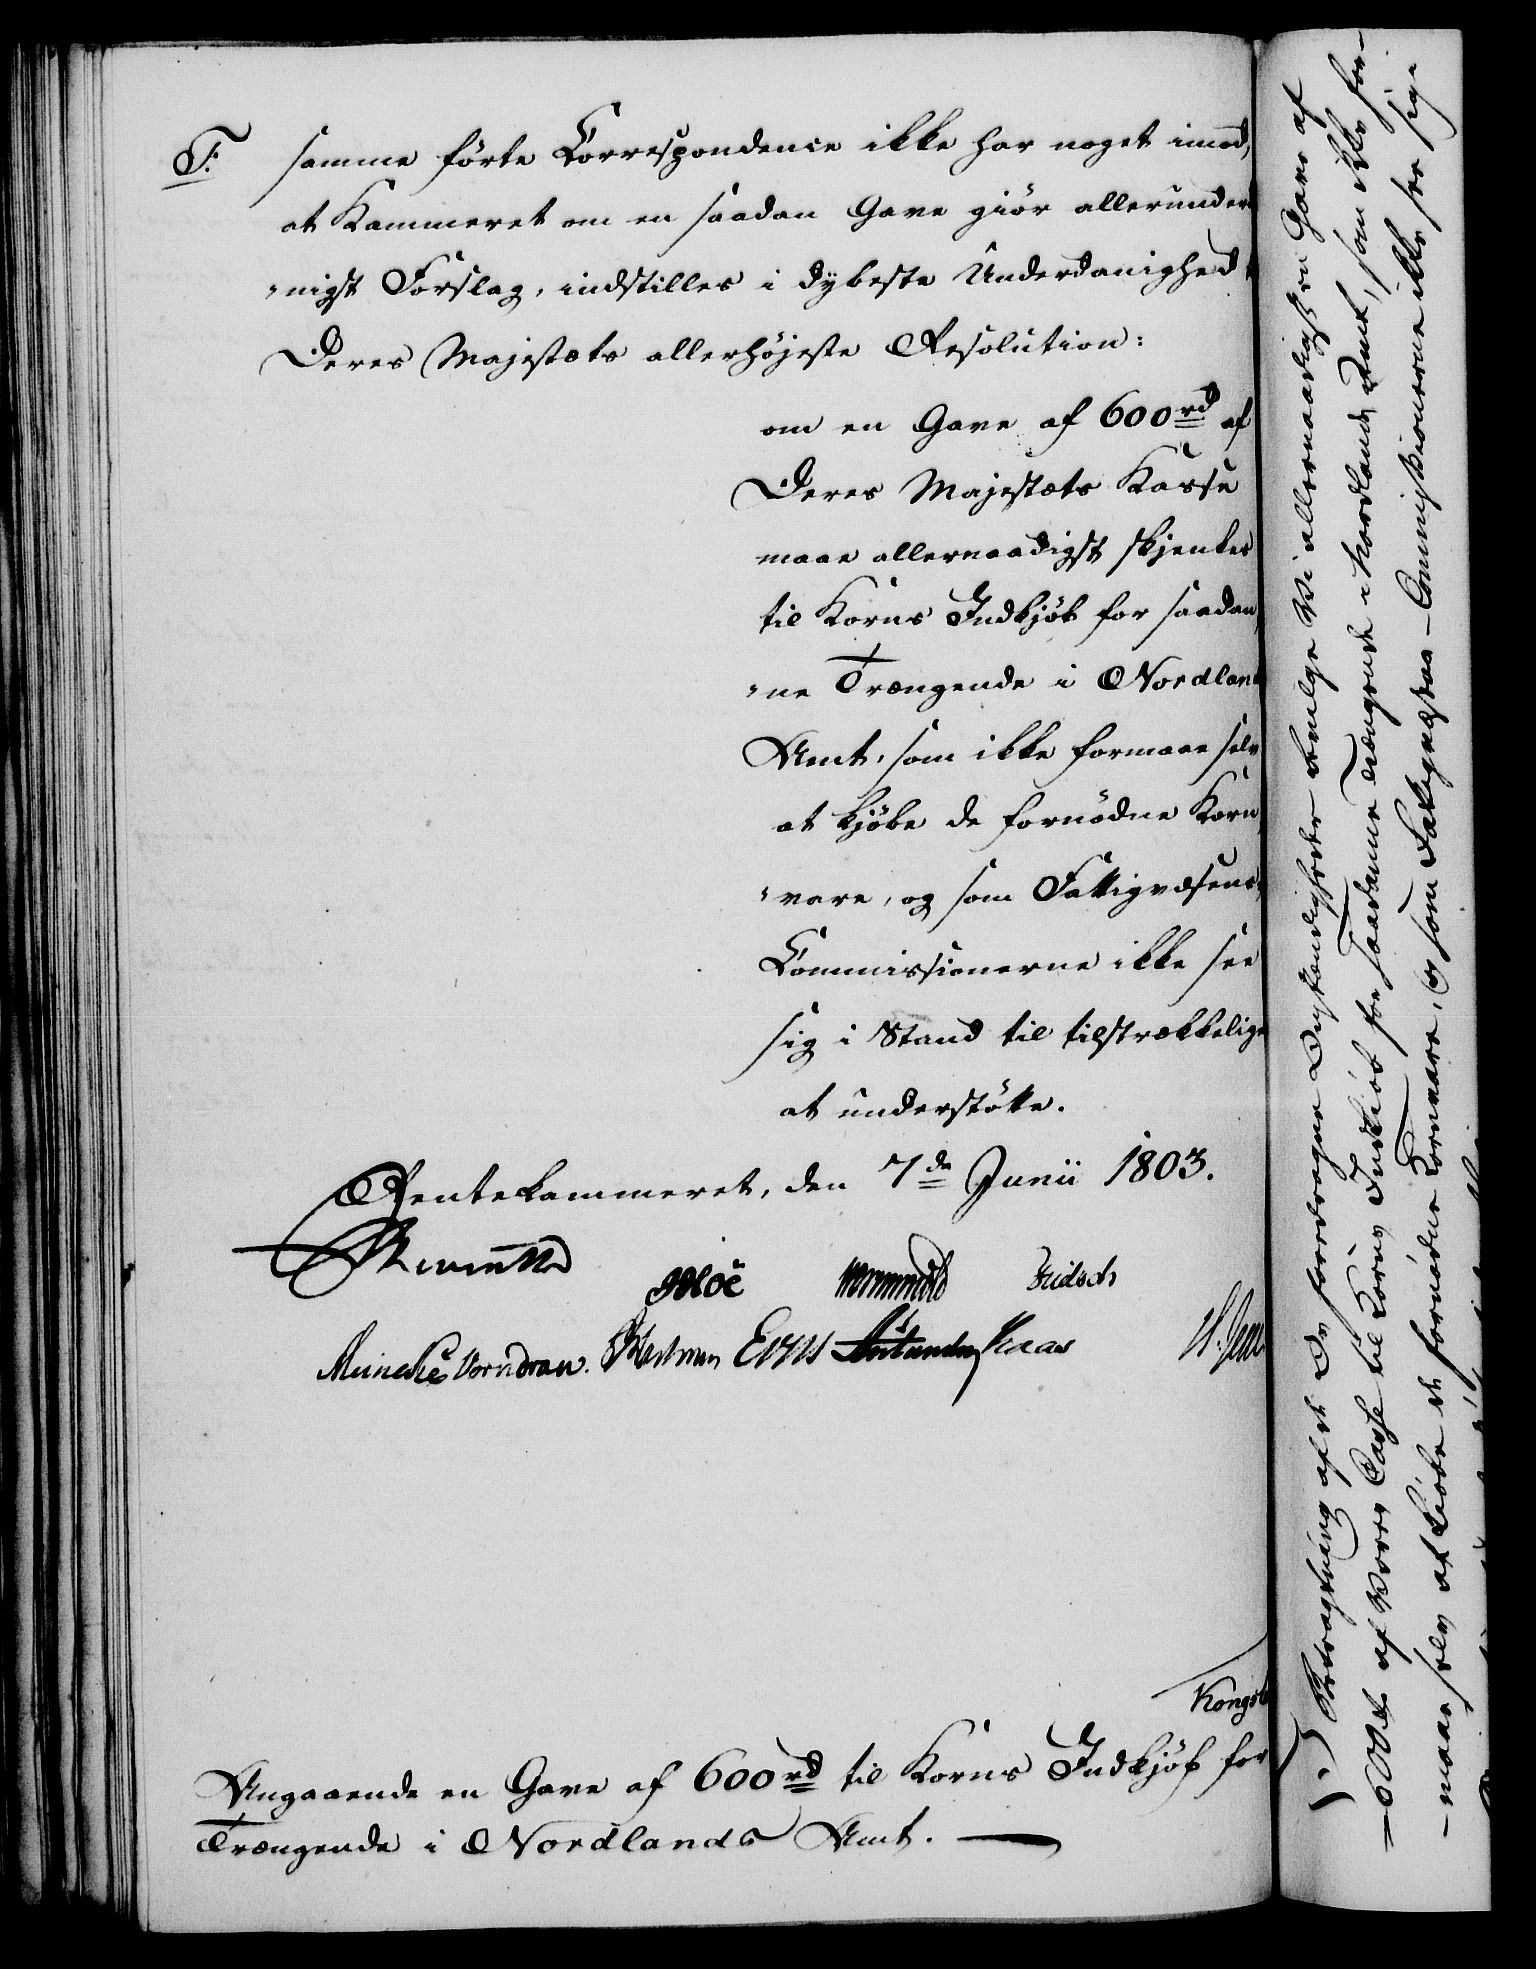 F.
samme förte Correspondence ikke har noget imod,
at Kammeret om en saadan Gave giör allerunder
-nigst Forslag, indstilles i dybeste Underdanighed
Deres Majestæts allerhöjeste Resolution:
om en Gave af 600rd af
Deres Majestæts Kasse
maae allernaadigst skjenkes
til Korns Indkjöb for saadan
-ne Trængende i Nordland
Amt, som ikke formaae selv
at kjöbe de fornödne Korn
-vare, og som Fattigvæsens
Commissionerne ikke see
sig i Stand til tilstrækkelige
at understötte.
Rentekammeret, den 7de Junii 1803.
Meinche Vorndran. Wormskiold Fridsch
Kaas
Kongsb
Angaaende en Gave af 600rd til Korns Indkjöb for
Trængende i Nordlands Amt.
J Betragtning af de Os foredragne Omstændigheder bevilge Vi allernaadigst en Gave af
600rd af Vores Casse til Korns Indkiöb for saadanne Trængende i Nordlands Amt, som ikke for-
-maae selv at kiöbe de fornödne Kornvare, og som Fattigvæsens-Commissionerne ikke see sig i